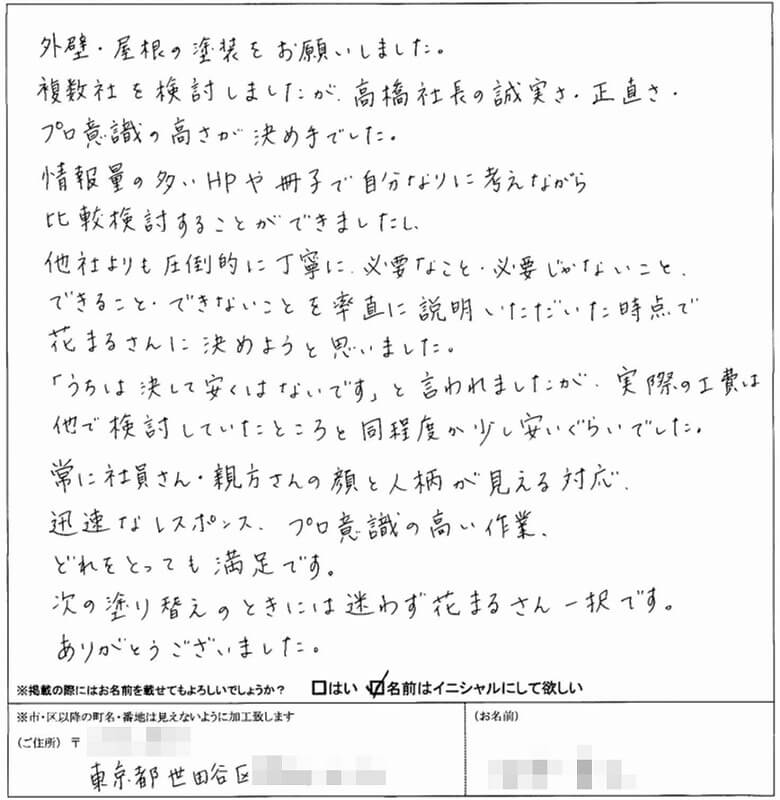 外壁・屋根の塗装をお願いしました。
複数社を検討しましたが、高橋社長の誠実さ・正直さ・
プロ意識の高さが決め手でした。
情報量の多いHPや冊子で自分なりに考えながら
比較検討することができましたし、
他社よりも圧倒的に丁寧に、必要なこと・必要じゃないこと、
できること・できないことを率直に説明いただいた時点で
花まるさんに決めようと思いました。
「うちは決して安くはないです」と言われましたが、実際の工費は
他で検討していたところと同程度か少し安いぐらいでした。
常に社員さん・親方さんの顔と人柄が見える対応、
迅速なレスポンス、プロ意識の高い作業、
どれをとっても満足です。
次の塗り替えのときには迷わず花まるさん一択です。
ありがとうございました。
※掲載の際にはお名前を載せてもよろしいでしょうか? □はい ☑名前はイニシャルにして欲しい
※市・区以降の町名・番地は見えないように加工致します
(お名前)
(ご住所) 〒
東京都世田谷区